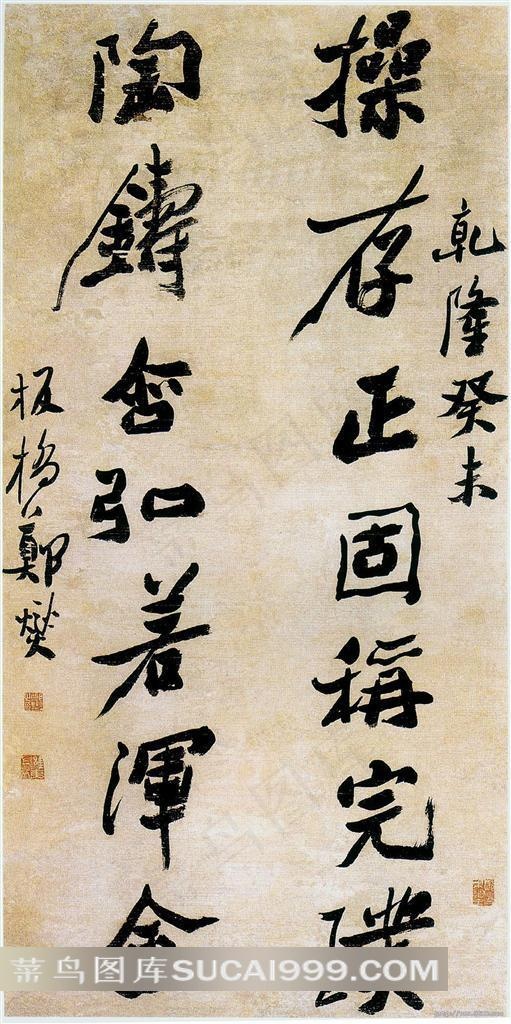 乾隆癸未
操存正固稱完璞
陶鑄含弘若渾金
板橋鄭燮
菜鸟图库SUCAI999.COM